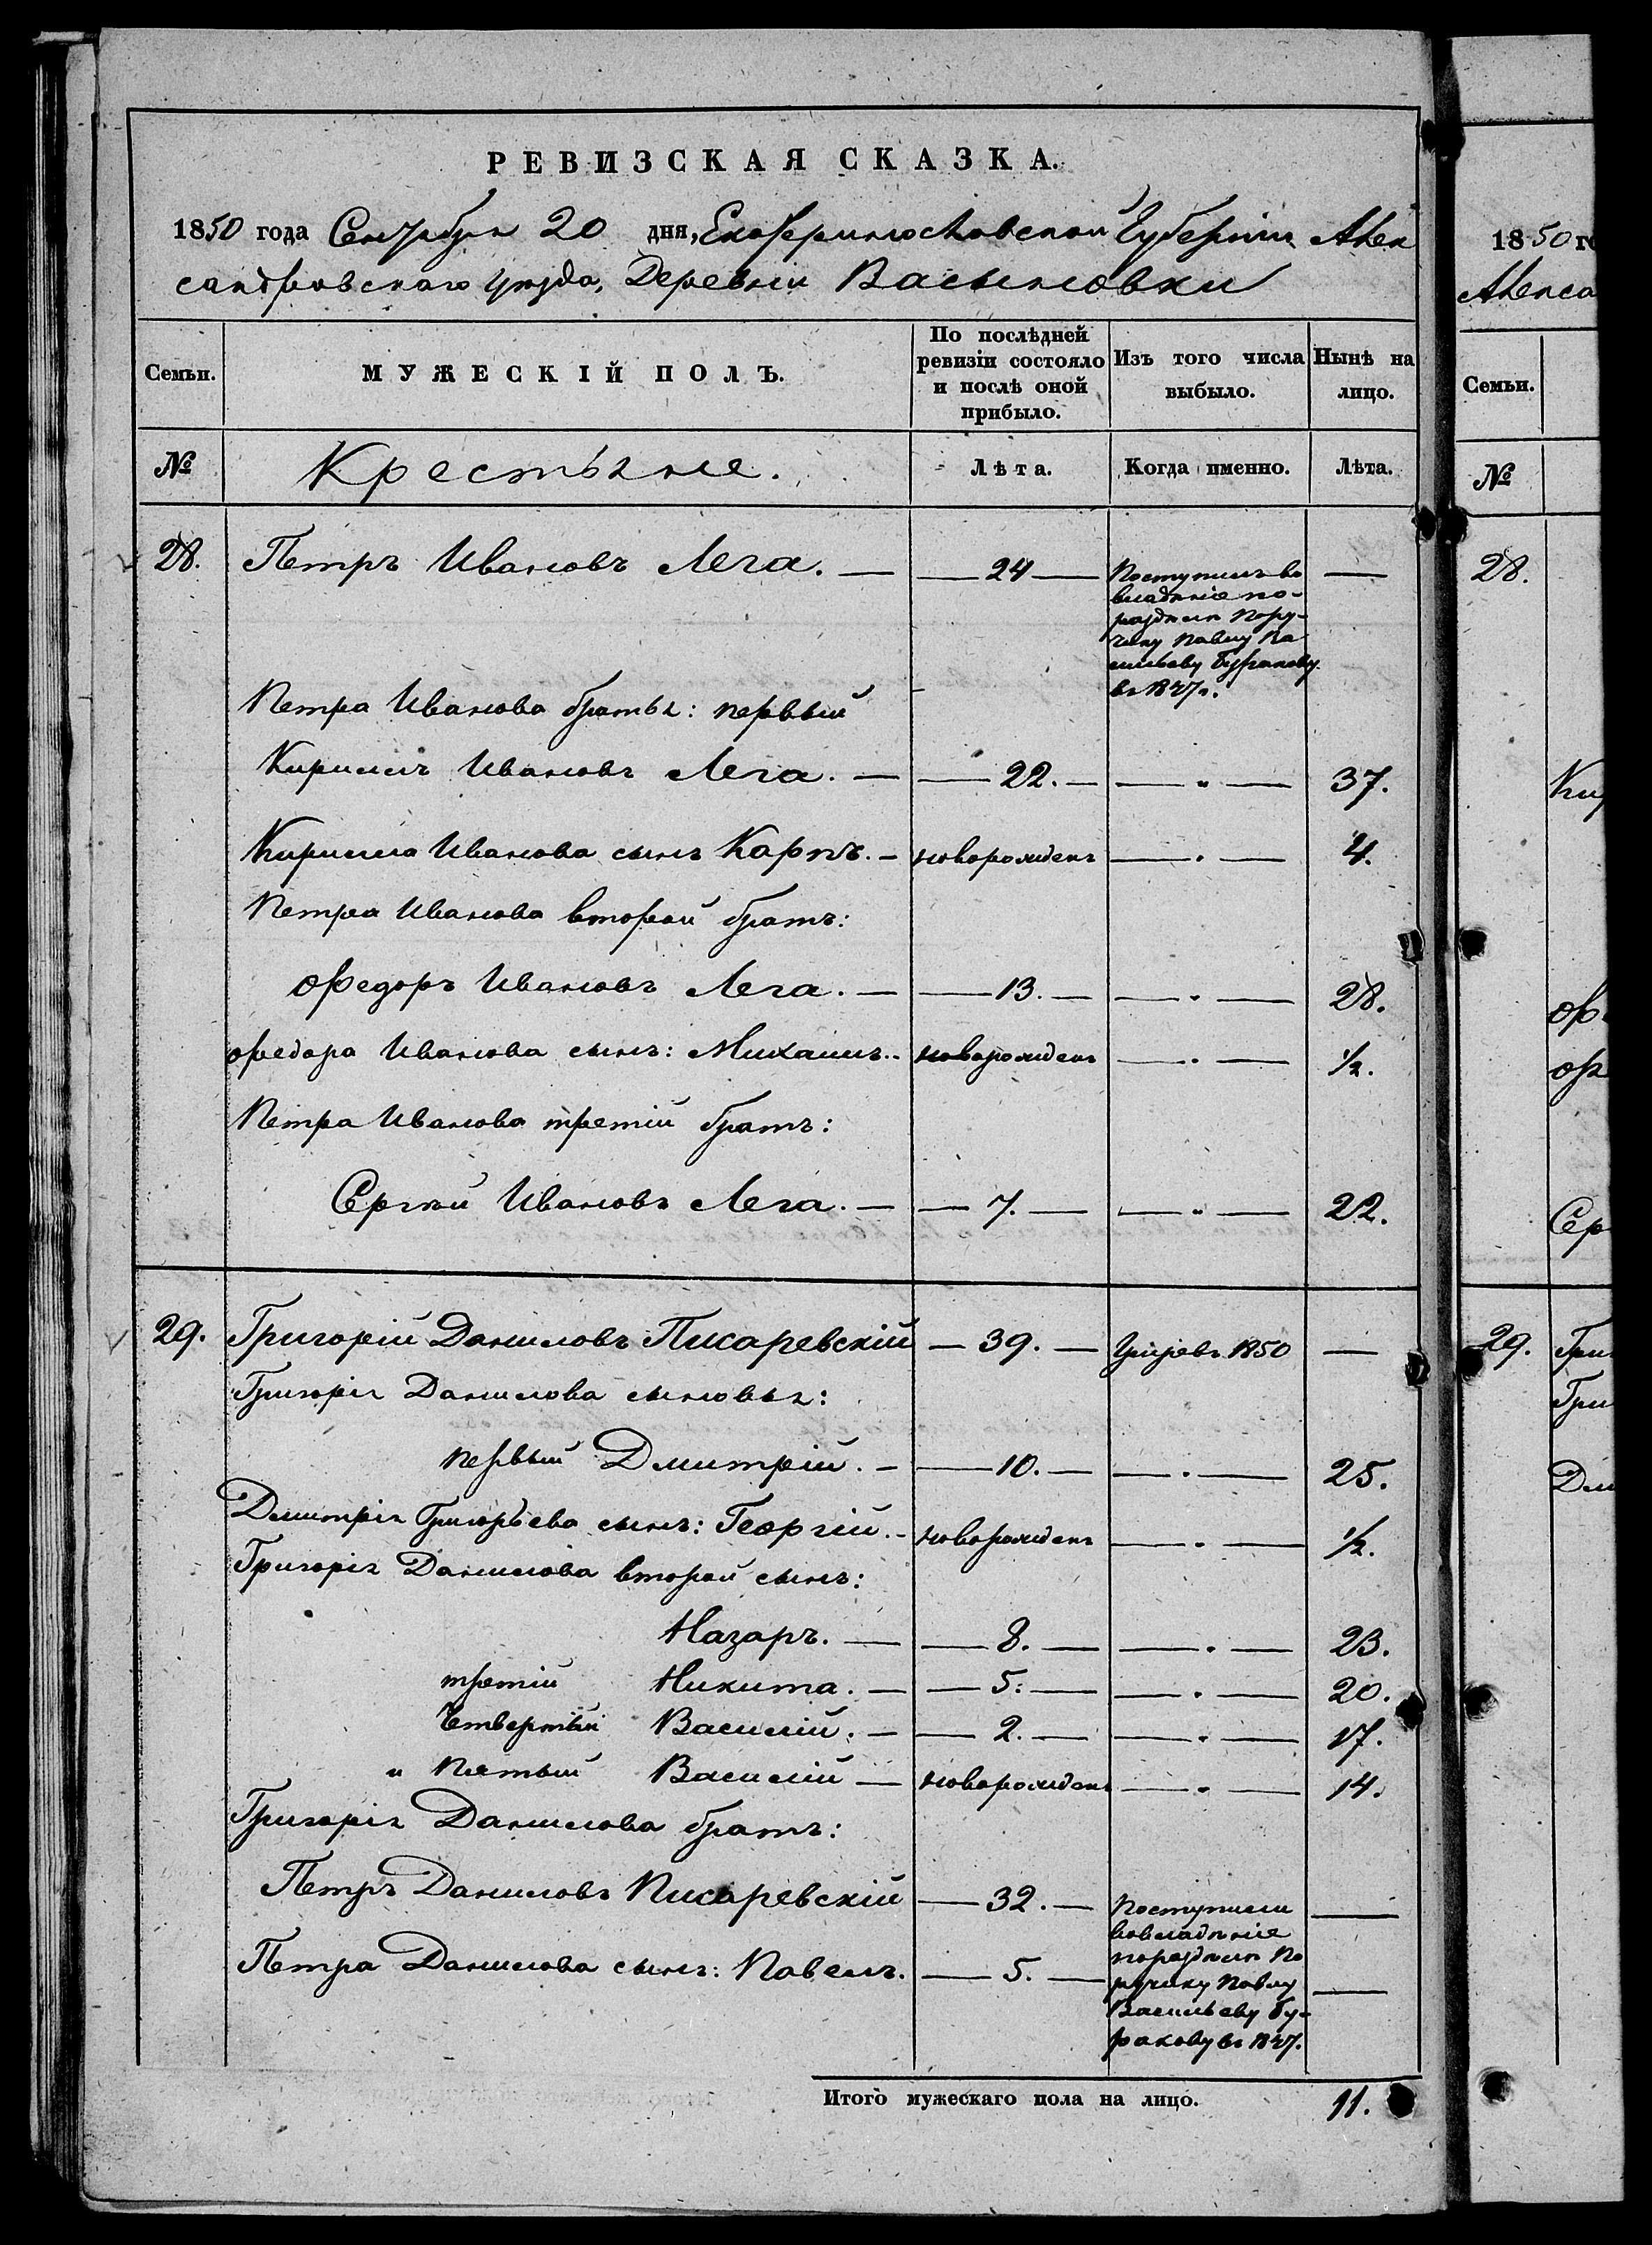 РЕВИЗСКАЯ СКАЗКА.
1850 года Сентября 20 дня, Екатеринославской Губерніи Алек
сандровскаго уѣзда, Деревни Васыновки
Семьи. МУЖЕСКІЙ ПОЛЪ. По послѣдней ревизіи состояло и послѣ оной прибыло. Изъ того числа выбыло. Нынѣ на лицо.
№ Крестьяне. Лѣта. Когда именно. Лѣта.
28. Петръ Ивановъ Лега. — 24 — Поступилъ во —
владѣніе по-
раздѣлу Пору-
чику Павлу Ва
сильеву Буракову
въ 1847.
Петра Иванова братья: первый
Кирилъ Ивановъ Лега. — 22. — " — 37.
Кирила Иванова сынъ Карпъ. — новорожденъ — " — 4.
Петра Иванова второй братъ:
Ѳедоръ Ивановъ Лега. — 13. — " — 28.
Ѳедора Иванова сынъ: Михаилъ. — новорожденъ — " — 1/2.
Петра Иванова третій братъ:
Сергѣй Ивановъ Лега. — 7. — " — 22.
29. Григорій Даниловъ Писаревскій — 39. — Умре въ 1850 —
Григорія Данилова сыновья:
первый Дмитрій. — 10. — " — 25.
Дмитрія Григорьева сынъ: Георгій. — новорожденъ — " — 1/2.
Григорія Данилова второй сынъ:
Назаръ. — 8. — " — 23.
третій Никита. — 5. — " — 20.
Четвертый Василій. — 2. — " — 17.
и Пятый Василій — новорожденъ — " — 14.
Григорія Данилова братъ:
Петръ Даниловъ Писаревскій — 32. — Поступили —
во владѣніе
Петра Данилова сынъ: Павелъ. — 5. — по раздѣлу По
ручику Павлу —
Васильеву Бу-
ракову въ 1847.
Итого мужескаго пола на лицо. 11.
1850 го
Алекса
Семьи.
№
28.
Кир
Ѳе
Ѳе
Сер
29. Гри
Гри
Дми